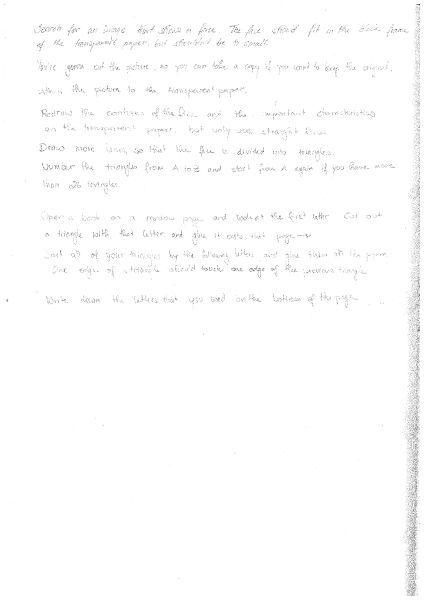 Search for an image that shows a face. The face should fit in the frame
of the transparent paper, but shouldn't be to small.
You're gonna cut the picture, so you can take a copy if you want to keep the original.
the picture to the transparent paper.
Redraw the contours of the face and the important characteristics
on the transparent paper, but only use straight lines.
Draw more lines, so that the face is divided into triangles.
Number the triangles from A to Z and start from A again if you have more
than 26 triangles.
Open a book on a random page and look at the first letter. Cut out
a triangle with that letter and glue it onto that page
all of your triangles by the following letters and glue them
One edge of a triangle should touch one edge of the previous triangle
Write down the letters that you used on the bottom of the page